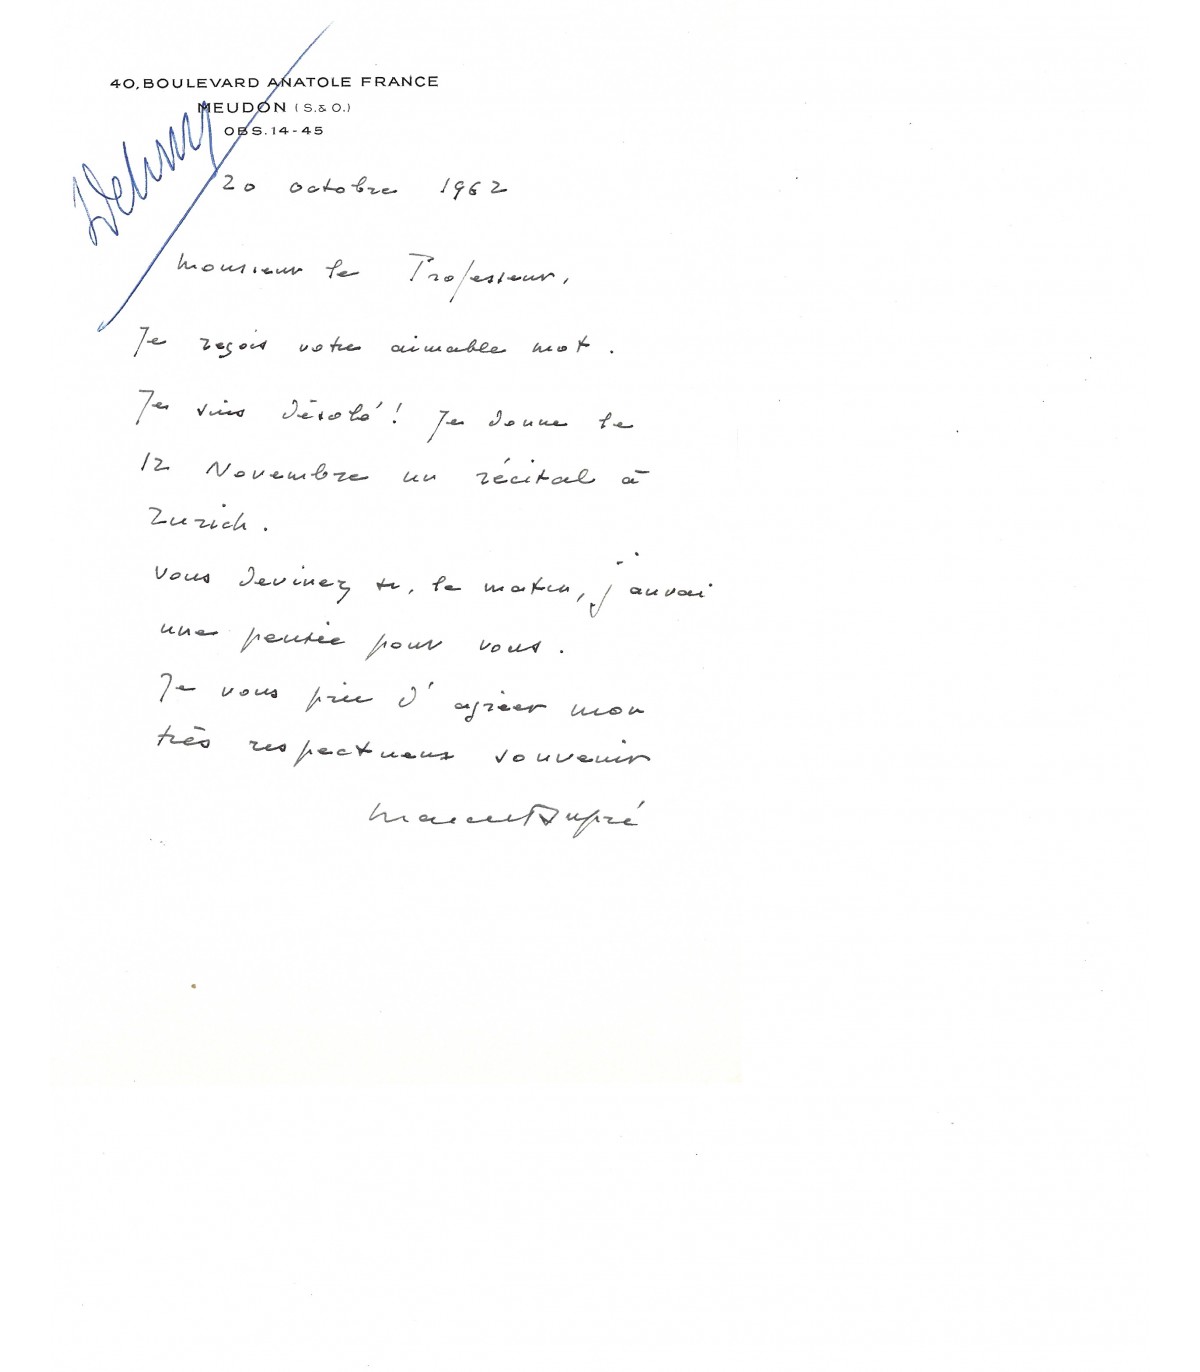 40, BOULEVARD ANATOLE FRANCE
MEUDON (S. & O.)
OBS. 14-45
20 octobre 1962
Monsieur le Professeur,
Je reçois votre aimable mot.
Je suis désolé! Je donne le
12 Novembre un récital à
Zurich.
Vous devinez si, le matin, j'aurai
une pensée pour vous.
Je vous prie d'agréer mon
très respectueux souvenir
Marcel Dupré